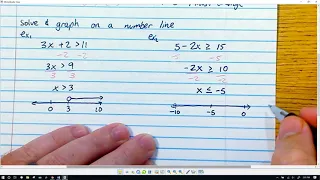 Solve & graph on a number line
ex₁
3x + 2 > 11
-2 -2
3x > 9
3 3
x > 3
0 3 10
ex₂
5 - 2x ≥ 15
-5 -5
-2x ≥ 10
-2 -2
x ≤ -5
-10 -5 0